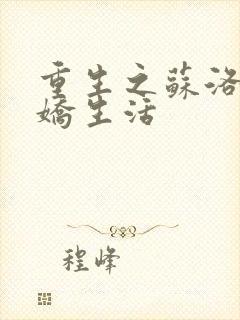 重生之蘇洛
嬌生活
程峰